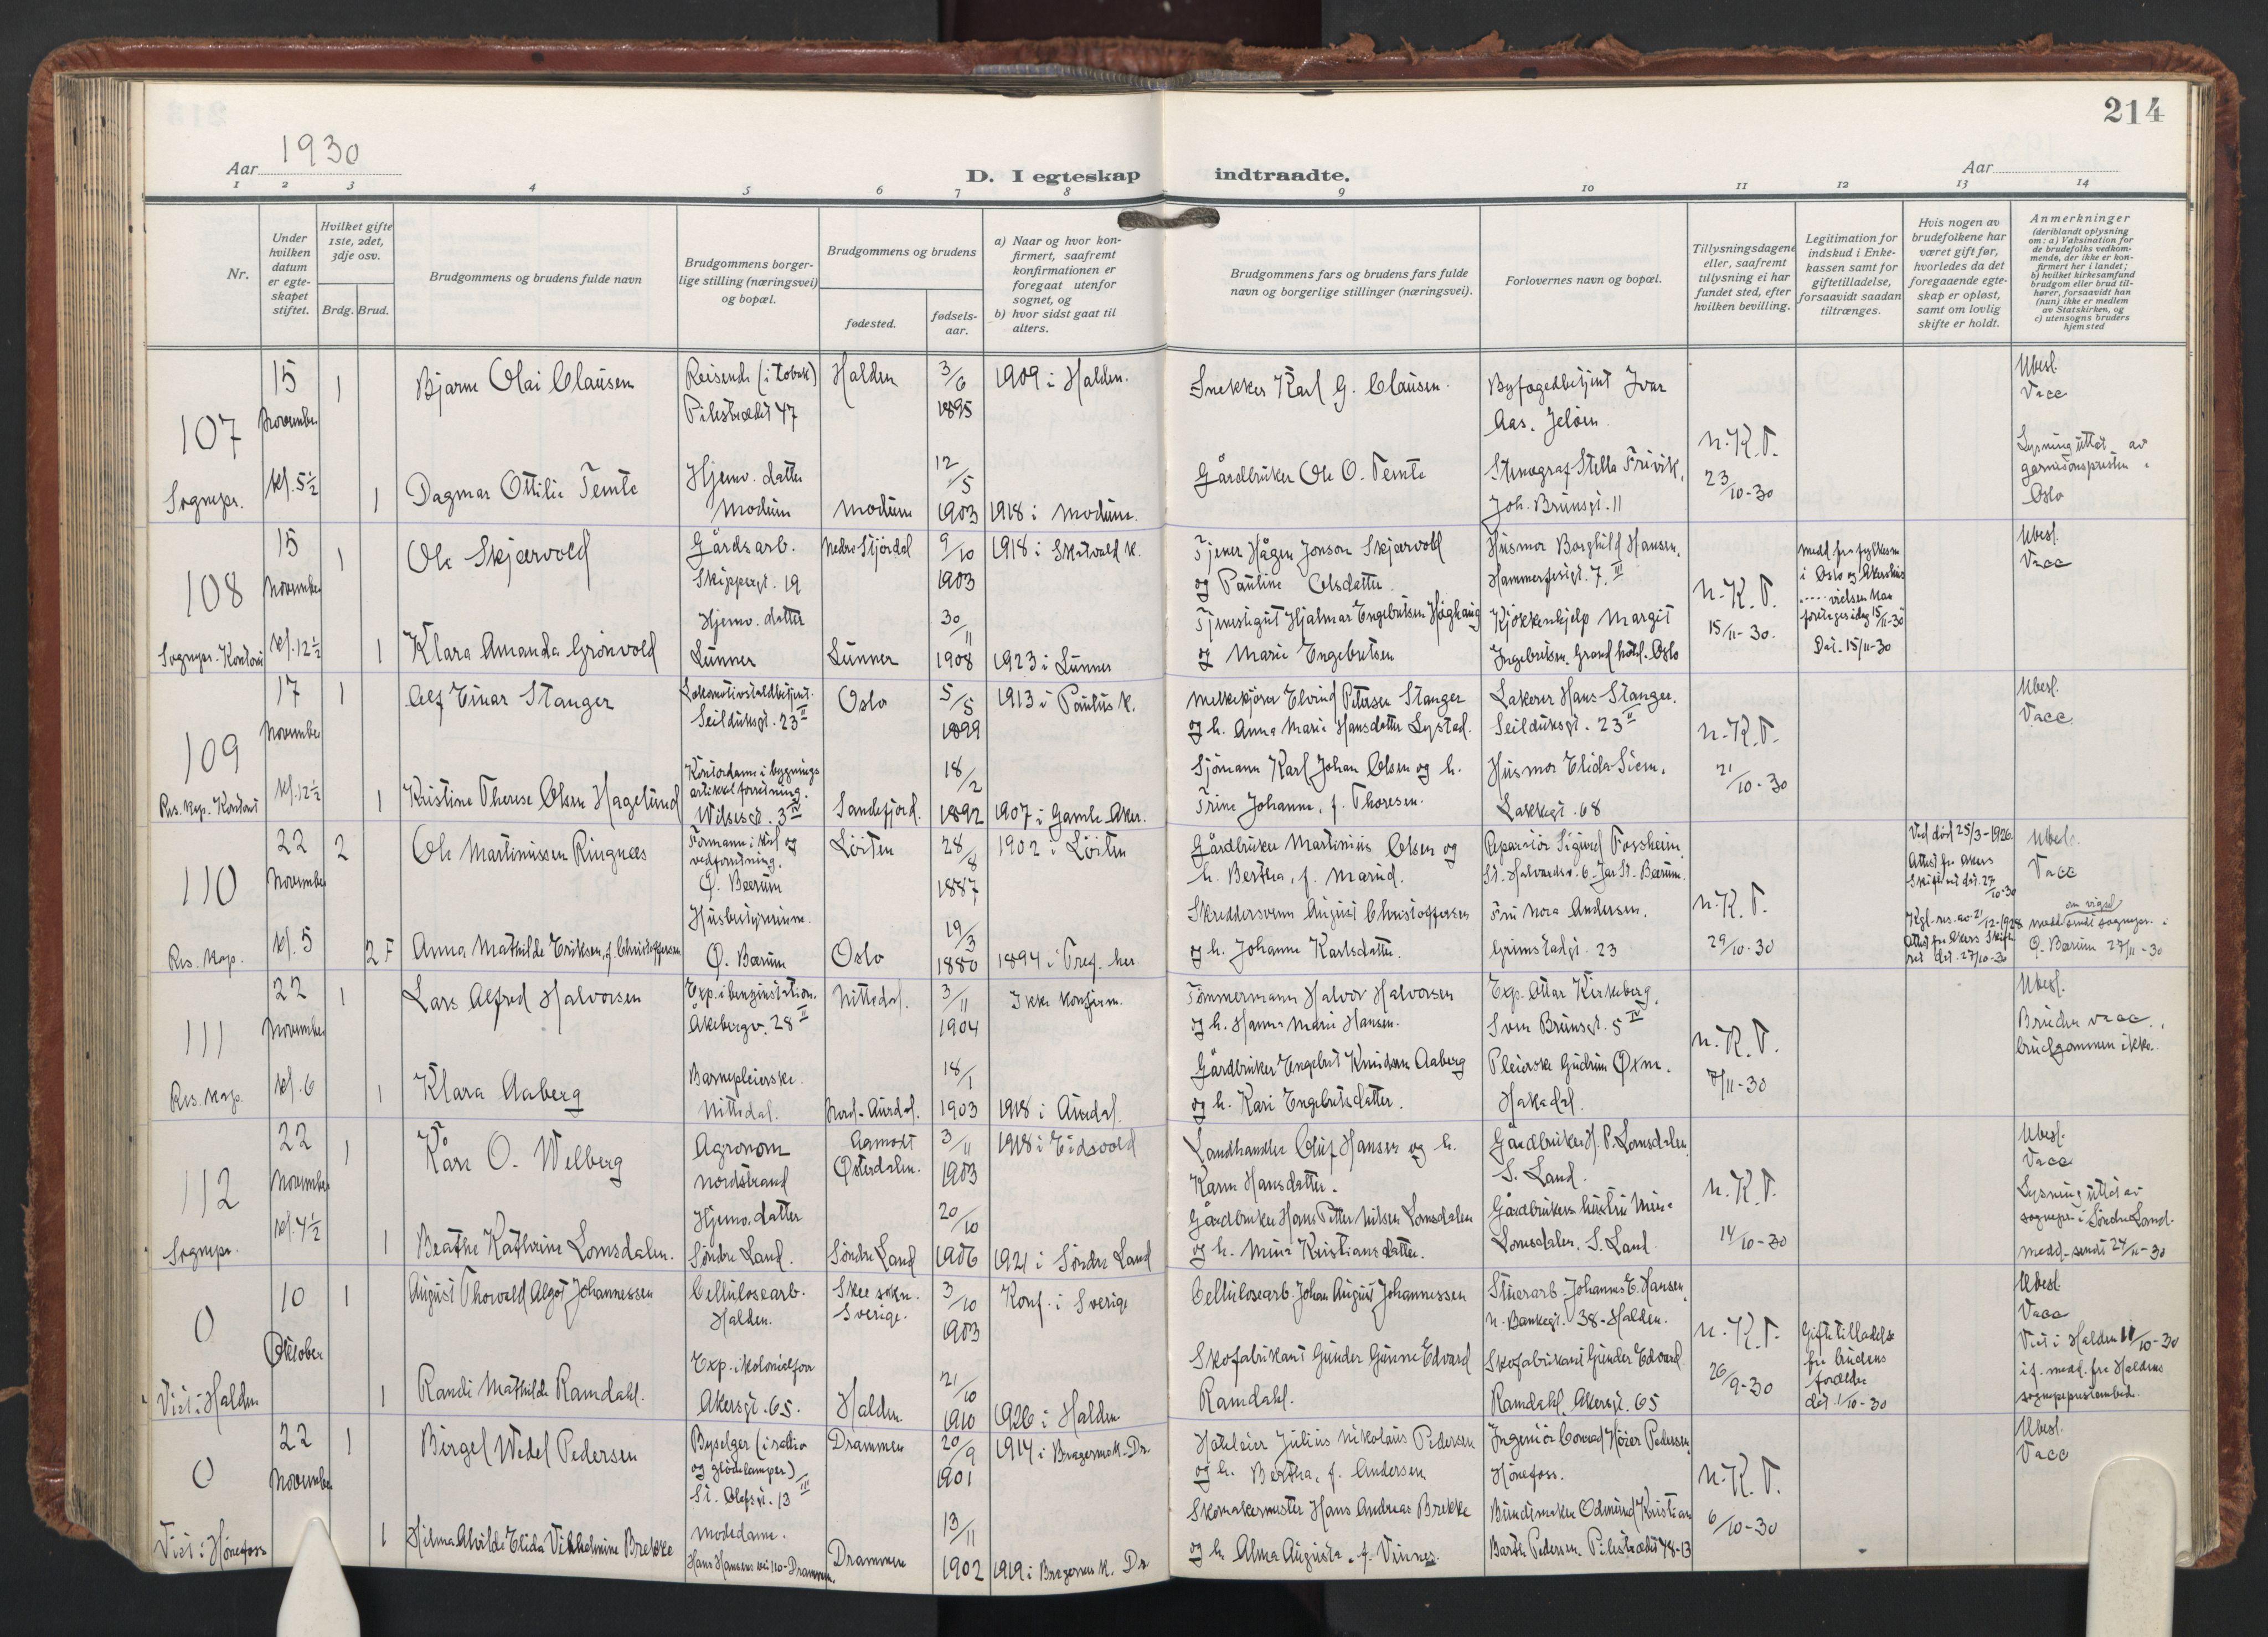 214
Aar 1930
D. I egteskap indtraadte.
Aar
1 2 3 4 5 6 7 8 9 10 11 12 13 14
Nr.
Under hvilken datum er egteskapet stiftet.
Hvilket gifte 1ste, 2det, 3dje osv.
Brdg. Brud.
Brudgommens og brudens fulde navn
Brudgommens borgerlige stilling (næringsvei) og bopæl.
Brudgommens og brudens
fødested.
fødselsaar.
a) Naar og hvor konfirmert, saafremt konfirmationen er foregaat utenfor sognet, og
b) hvor sidst gaat til alters.
Brudgommens fars og brudens fars fulde navn og borgerlige stillinger (næringsvei).
Forlovernes navn og bopæl.
Tillysningsdagene eller, saafremt tillysning ei har fundet sted, efter hvilken bevilling.
Legitimation for indskud i Enkekassen samt for giftetilladelse, forsaavidt saadan tiltrænges.
Hvis nogen av brudefolkene har været gift før, hvorledes da det foregaaende egteskap er opløst, samt om lovlig skifte er holdt.
Anmerkninger
(deriblandt oplysning om: a) Vaksination for de brudefolks vedkommende, der ikke er konfirmert her i landet;
b) hvilket kirkesamfund brudgom eller brud tilhører, forsaavidt han (hun) ikke er medlem av Statskirken, og
c) utensogns bruders hjemsted
107 15 November kl. 5½ Sognepr.
1 Bjarne Olai Clausen Reisende (i tobak) Pilestrædet 47 Halden 3/6 1895 1909 i Halden. Snekker Karl G. Clausen. Byfogedbetjent Ivar Aas. Jeløen. Ubesl. Vacc
1 Dagmar Ottilie Temte Hjemv. datter Modum Modum 12/5 1903 1918 i Modum. Gårdbruker Ole O. Temte Stenograf Stella Frivik, Joh. Brunsgt. 11 n. K. T. 23/10-30 Lysning uttat av garnisonspresten i Oslo
108 15 November kl. 12½ Sognepr. Kontor
1 Ole Skjærvold Gårdsarb. Skippergt. 19 Nedre Stjørdal 9/10 1903 1918 i Skatvold k. Tjener Hågen Jonson Skjærvold og Pauline Olsdatter. Husmor Borghild Hansen, Hammerfestgt. 7. III n. K. T. 15/11-30. Medd. fra fylkesm i Oslo og Akershus .... vielsen kan foretages idag 15/11-30 Dat. 15/11-30 Ubesl. Vacc
1 Klara Amanda Grønvold Hjemv. datter Lunner Lunner 30/11 1908 1923 i Lunner Tjenestegut Hjalmar Engebretsen Høghaug og Marie Engebretsen Kjøkkenhjelp Margit Ingebretsen. Grand hotel. Oslo
109 17 November kl. 12½ Res. kap. Kontoret
1 Alf Einar Stanger Lokomotivstaldbetjent. Seilduksgt. 23 II Oslo 5/5 1899 1913 i Paulus k. Melkekjører Elvind Petersen Stanger og h. Anna Marie Hansdatter Lystad. Lakerer Hans Stanger. Seilduksgt. 23 II n. K. T. 21/10-30 Ubesl. Vacc
1 Kristine Therese Olsen Hagelund Kontordame i bygningsartikkelforretning. Wilsesgt. 3 IV Sandefjord. 18/2 1892 1907 i Gamle Aker. Sjømann Karl Johan Olsen og h. Trine Johanne, f. Thoresen. Husmor Elida Siem, Lakkegt. 68
110 22 November kl. 5 Res. kap.
2 Ole Martinussen Ringnes Formann i kul og vedforretning. Ø. Bærum Løiten 28/8 1887 1902 i Løiten Gårdbruker Martinius Olsen og h. Bertha, f. Marud. Reparatør Sigurd Fossheim, St. Halvardsv. 6. Jar St. Bærum. n. K. T. 29/10-30 Ved død 25/3-1926. Attest fra Akers Skifteret dat. 27/10-30 Ubesl. Vacc
2 F Anna Mathilde Eriksen, f. Christoffersen Husbestyrerinne. Ø. Bærum Oslo 19/3 1880 1894 i Tref. her. Skreddersvenn August Christoffersen og h. Johanne Karlsdatter. Fru Nora Andersen, Grimstadgt. 23 Kgl. res. av 21/12-1928 Attest fra Akers Skifteret dat. 27/10-30 Medd. om vigsel sendt sognepr. i Ø. Bærum 27/11-30
111 22 November kl. 6 Res. kap.
1 Lars Alfred Halvorsen Exp. i benzinstation. Åkebergv. 28 II Nittedal. 3/11 1904 Ikke konfirm. Tømmermann Halvor Halvorsen og h. Hanna Marie Hansen. Exp. Ottar Kirkeberg, Sven Brunsgt. 5 IV n. K. T. 7/11-30 Ubesl. Bruden vacc., brudgommen ikke.
1 Klara Aaberg Barnepleierske. Nittedal. Nord-Aurdal. 18/1 1903 1918 i Aurdal. Gårdbruker Engebret Knudsen Aaberg og h. Kari Engebretsdatter. Pleierske Gudrun Øxne. Hakadal.
112 22 November kl. 4½ Sognepr.
1 Kåre O. Welberg Agronom Nordstrand Aamodt Østerdalen. 3/11 1903 1918 i Eidsvold Landhandler Oluf Hansen og h. Karen Hansdatter. Gårdbruker H. P. Lomsdalen, S. Land. n. K. T. 14/10-30 Ubesl. Vacc Lysning uttat av sognepr. i Søndre Land. Medd. sendt 24/11-30
1 Beathe Kathrine Lomsdalen. Hjemv. datter Søndre Land. Søndre Land 20/10 1906 1921 i Søndre Land Gårdbruker Hans Petter Nilsen Lomsdalen og h. Mina Kristiansdatter. Gårdbrukers hustru Mina Lomsdalen, S. Land
0 10 Oktober Viet i Halden
1 August Thorvald Algot Johannessen Cellulosearb. Halden. Skee sokn. Sverige. 3/10 1903 Konf. i Sverige Cellulosearb. Johan August Johannessen Stuerarb. Johannes E. Hansen, n. Bankegt. 38-Halden. n. K. T. 26/9-30 Giftetilladelse fra brudens forældre dat. 1/10-30 Ubesl. Vacc Viet i Halden 11/10-30 if. medd. fra Haldens sogneprestembed.
1 Randi Mathilde Ramdahl. Exp. i kolonialforr Akersgt. 65. Halden. 21/10 1910 1926 i Halden Skofabrikant Gunder Gunne Edvard Ramdahl. Skofabrikant Gunder Edvard Ramdahl. Akersgt. 65
0 22 November Viet i Hønefoss
1 Birgel Wedel Pedersen Byselger (i radio og glødelamper) St. Olafsgt. 13 III Drammen 20/9 1901 1914 i Bragernes k. Dr. Hotleier Julius Nikolaus Pedersen og h. Bertha, f. Andersen Ingeniør Conrad Høier Pedersen, Hønefoss. n. K. T. 6/10-30 Ubesl. Vacc
1 Hilma Alvilde Elida Vilhelmine Brekke Motedame. Hans Hansens vei 110-Drammen. Drammen 13/11 1902 1919 i Bragernes k. Dr. Skomakermester Hans Andreas Brekke og h. Alma Augusta, f. Vinnes. Buntmaker Odmund Kristian Barth Pedersen. Pilestrædet 78-13